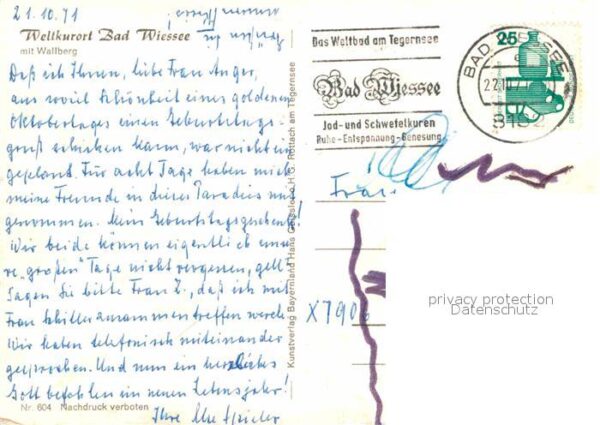 21.10.71
Weltkurort Bad Wiessee
mit Wallberg
Daß ich Ihnen, liebe Frau Anger,
aus soviel Schönheit eines goldenen
Oktobertages einen Geburtstags-
gruß schicken kann, war nicht ein-
geplant. Für acht Tage haben mich
meine Freunde in dieses Paradies mit-
genommen. Mein Geburtstagsgeschenk!
Wir beide können eigentlich unse-
re „großen" Tage nicht vergessen, gell?
Sagen Sie bitte Frau Z., daß ich mit
Frau Schiller zusammentreffen werde.
Wir haben telefonisch miteinander
gesprochen. Und nun ein herzliches
Gott befohlen im neuen Lebensjahr!
Nr. 604 Nachdruck verboten
Ihre
Kunstverlag Bayernland Hans
Rottach am Tegernsee
Das Weltbad am Tegernsee
Bad Wiessee
Jod- und Schwefelkuren
Ruhe - Entspannung - Genesung
BAD WIESSEE
22.10.71
8182
25
Frau
X7906
privacy protection
Datenschutz